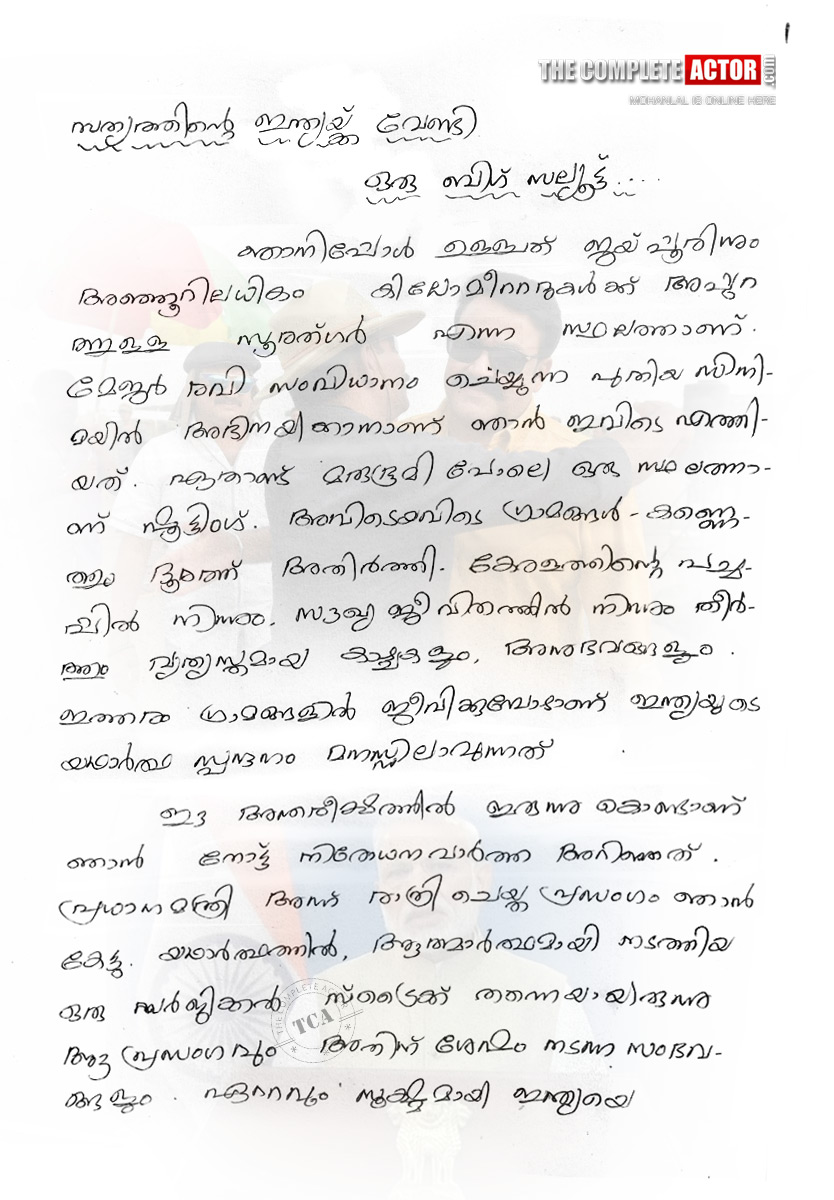 1
THE COMPLETE ACTOR.com
MOHANLAL IS ONLINE HERE
സത്യത്തിന്റെ ഇന്ത്യയ്ക്ക് വേണ്ടി
ഒരു ബിഗ് സല്യൂട്ട്.....
ഞാനിപ്പോൾ ഉള്ളത് ജയ്പ്പൂരിനും
അഞ്ഞൂറിലധികം കിലോമീറ്ററുകൾക്ക് അപ്പുറ
ത്തുള്ള സൂരത്ഗർ എന്ന സ്ഥലത്താണ്.
മേജർ രവി സംവിധാനം ചെയ്യുന്ന പുതിയ സിനി-
മയിൽ അഭിനയിക്കാനാണ് ഞാൻ ഇവിടെ എത്തി-
യത്. ഏതാണ്ട് മരുഭൂമി പോലെ ഒരു സ്ഥലത്താ-
ണ് ഷൂട്ടിംഗ്. അവിടെയവിടെ ഗ്രാമങ്ങൾ - കണ്ണെ-
ത്തും ദൂരത്ത് അതിർത്തി. കേരളത്തിന്റെ പച്ച-
പ്പിൽ നിന്നും, സൗഖ്യ ജീവിതത്തിൽ നിന്നും തീർ-
ത്തും വ്യത്യസ്തമായ കാഴ്ചകളും, അനുഭവങ്ങളും.
ഇത്തരം ഗ്രാമങ്ങളിൽ ജീവിക്കുമ്പോഴാണ് ഇന്ത്യയുടെ
യഥാർത്ഥ സ്പന്ദനം മനസ്സിലാവുന്നത്
ഈ അന്തരീക്ഷത്തിൽ ഇരുന്നു കൊണ്ടാണ്
ഞാൻ നോട്ട് നിരോധന വാർത്ത അറിഞ്ഞത്.
പ്രധാനമന്ത്രി അന്ന് രാത്രി ചെയ്ത പ്രസംഗം ഞാൻ
കേട്ടു. യഥാർത്ഥത്തിൽ, ആത്മാർത്ഥമായി നടത്തിയ
ഒരു സർജിക്കൽ സ്ട്രൈക്ക് തന്നെയായിരുന്നു
ആ പ്രസംഗവും അതിന് ശേഷം നടന്ന സംഭവ-
ങ്ങളും. ഏറ്റവും സൂക്ഷ്മമായി ഇന്ത്യയെ
THE COMPLETE ACTOR
TCA